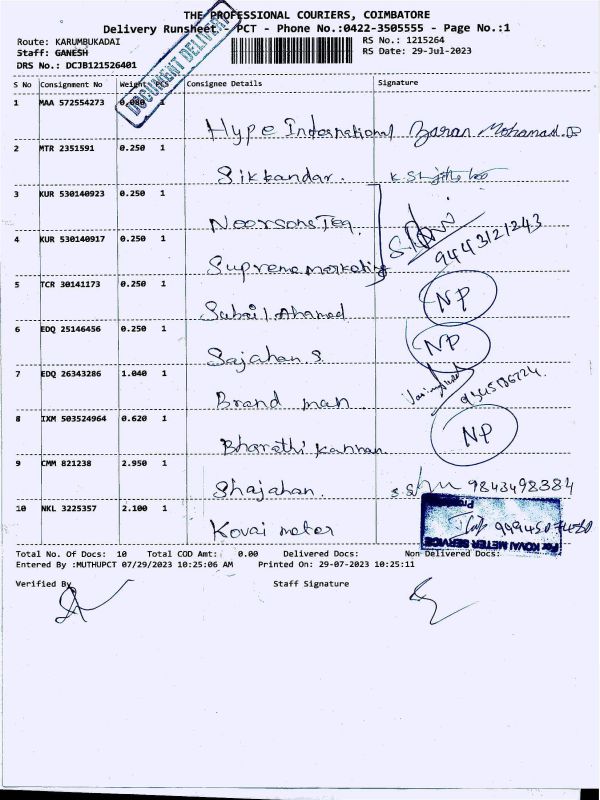 THE PROFESSIONAL COURIERS, COIMBATORE
Delivery Runsheet - PCT - Phone No.:0422-3505555 - Page No.:1
Route: KARUMBUKADAI
Staff: GANESH
DRS No.: DCJB121526401
RS No.: 1215264
RS Date: 29-Jul-2023
DOCUMENT DELIVERY
S No Consignment No Weight PCS Consignee Details Signature
1 MAA 572554273 0.080 1
Hype International Baran Mohamad
2 MTR 2351591 0.250 1
Sikkandar.
3 KUR 530140923 0.250 1
Noorsons Teq
4 KUR 530140917 0.250 1
9443121243
Supreme marketing
5 TCR 30141173 0.250 1
Subail Ahamed NP
6 EDQ 25146456 0.250 1
Sajahan.S NP
7 EDQ 26343286 1.040 1
Brand man
8 IXM 503524964 0.620 1
Bharathi Kannan NP
9 CMM 821238 2.950 1
Shajahan. 9843498384
10 NKL 3225357 2.100 1
Kovai meter
For KOVAI METER SERVICE
Total No. Of Docs: 10 Total COD Amt: 0.00 Delivered Docs: Non Delivered Docs:
Entered By :MUTHUPCT 07/29/2023 10:25:06 AM Printed On: 29-07-2023 10:25:11
Verified By Staff Signature